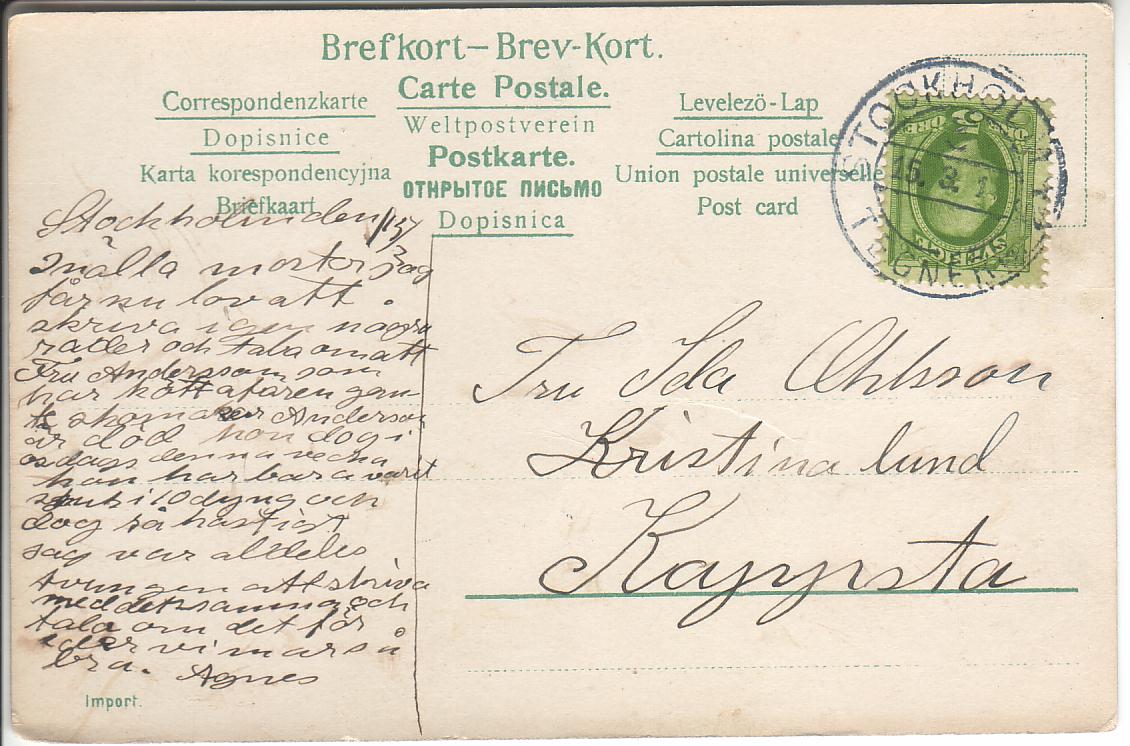 Brefkort– Brev-Kort.
Carte Postale.
Correspondenzkarte
Levelező-Lap
Weltpostverein
Dopisnice
Cartolina postale
Postkarte.
Karta korespondencyjna
Union postale universelle
ОТКРЫТОЕ ПИСЬМО
Briefkaart
Post card
Dopisnica
STOCKHOLM
15. 3. 1
SVERIGE
5 ÖRE
Stockholm den 15/3
Snälla moster jag
får nu lov att
skriva igen några
rader och tala om att
Fru Andersson som
har köttafären
skomaker Anderson
är död hon dog i
denna vecka
hon har bara varit
sjuk i 10 dygn och
dog så hastigt
jag var alldeles
tvungen att skriva
med detsamma och
tala om det för
eder vi mår så
bra. Agnes
Fru Ida Ohlsson
Kristinalund
Kappsta
Import.